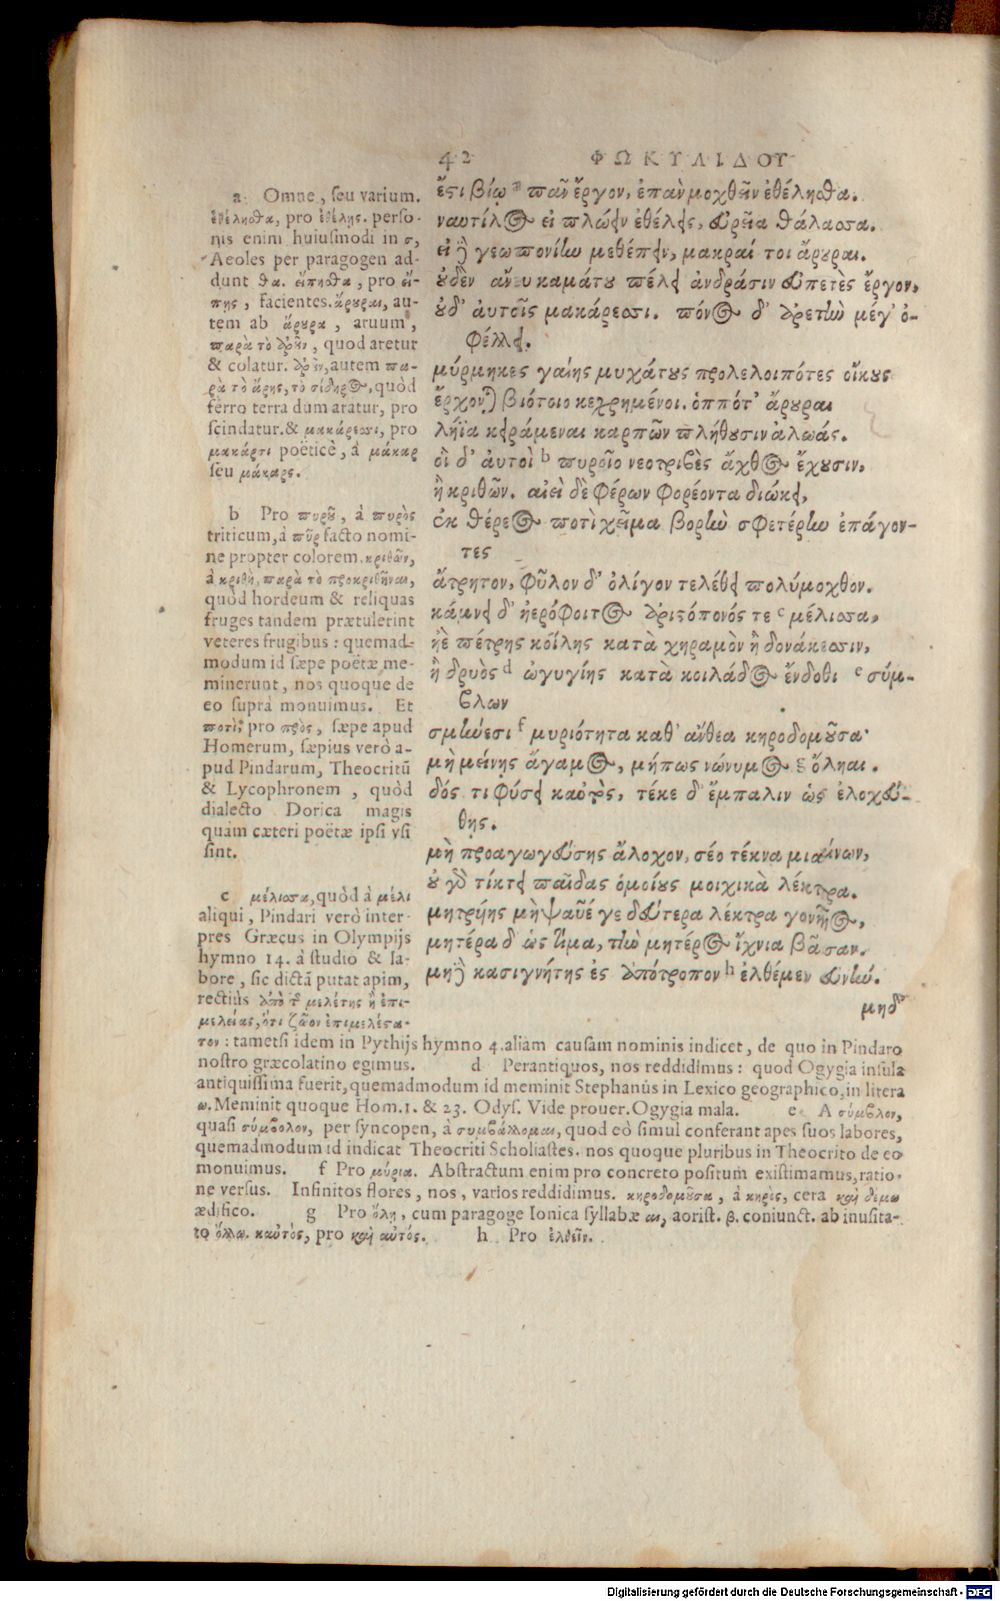 42 ΦΩΚΥΛΙΔΟΥ
ἔϛι βίῳ a πᾶν ἔργον, ἐπὰν μοχθεῖν ἐθέλησθα.
ναυτίλος εἰ πλώειν ἐθέλεις, εὐρεῖα θάλασσα.
εἰ δὲ γεωπονίην μεθέπειν, μακραί τοι ἄρουραι.
οὐδὲν ἄνευ καμάτου πέλει ἀνδράσιν εὐπετὲς ἔργον,
οὐδ' αὐτοῖς μακάρεσσι. πόνος δ' ἀρετὴν μέγ' ὀ-
φέλλει.
μύρμηκες γαίης μυχάτους προλελοιπότες οἴκους
ἔρχονται βιότοιο κεχρημένοι. ὁππότ' ἄρουραι
λήϊα κειράμεναι καρπῶν πλήθουσιν ἀλωάς.
οἱ δ' αὐτοὶ b πυροῖο νεοτριβὲς ἄχθος ἔχουσιν,
ἢ κριθῶν. αἰεὶ δὲ φέρων φορέοντα διώκει,
ἐκ θέρεος ποτὶ χεῖμα βορὴν σφετέρην ἐπάγον-
τες
ἄτρητον, φῦλον δ' ὀλίγον τελέθει πολύμοχθον.
κάμνει δ' ἠερόφοιτος ἀριϛόπονός τε c μέλισσα,
ἠὲ πέτρης κοίλης κατὰ χηραμὸν ἢ δονάκεσσιν,
ἢ δρυὸς d ὠγυγίης κατὰ κοιλάδος ἔνδοθι e σύμ-
βλων
σμήνεσι f μυριότητα καθ' ἄνθεα κηροδομοῦσα·
μὴ μείνης ἄγαμος, μήπως νώνυμος g ὄληαι.
δός τι φύσει καὐτὸς, τέκε δ' ἔμπαλιν ὡς ἐλοχεύ-
θης.
μὴ προαγωγεύσης ἄλοχον, σέο τέκνα μιαίνων,
οὐ γὰρ τίκτει παῖδας ὁμοίους μοιχικὰ λέκτρα.
μητρυίης μὴ ψαύέ γε δεύτερα λέκτρα γονῆος,
μητέρα δ' ὡς τίμα, τὴν μητέρος ἴχνια βᾶσαν.
μηδὲ κασιγνήτης ἐς ἀπότροπον h ἐλθέμεν εὐνήν.
μηδ'
a Omne, seu varium.
ἐθέλησθα, pro ἐθέλης. perso-
nis enim huiusmodi in σ,
Aeoles per paragogen ad-
dunt θα. εἴπησθα, pro εἴ-
πης, facientes. ἄρουραι, au-
tem ab ἄρουρα, aruum,
παρὰ τὸ ἀροῦν, quod aretur
& colatur. ἀροῦν, autem πα-
ρὰ τὸ ἄρης, τὸ σίδηρος, quòd
ferro terra dum aratur, pro
scindatur. & μακάρεσσι, pro
μακάρσι poëticè, à μάκαρ
seu μάκαρς.
b Pro πυροῦ, à πυρὸς
triticum, à πῦρ facto nomi-
ne propter colorem. κριθῶν,
à κριθὴ, παρὰ τὸ προκριθῆναι,
quòd hordeum & reliquas
fruges tandem prætulerint
veteres frugibus: quemad-
modum id sæpe poëtæ me-
minerunt, nos quoque de
eo suprà monuimus. Et
ποτὶ, pro πρὸς, sæpe apud
Homerum, sæpius verò a-
pud Pindarum, Theocritū
& Lycophronem, quòd
dialecto Dorica magis
quàm cæteri poëtæ ipsi vsi
sint.
c μέλισσα, quòd à μέλι
aliqui, Pindari verò inter-
pres Græcus in Olympijs
hymno 14. à studio & la-
bore, sic dictā putat apim,
rectiùs ἀπὸ τῆς μελέτης ἢ ἐπι-
μελείας, ὅτι ζῶον ἐπιμελέϛα-
τον: tametsi idem in Pythijs hymno 4. aliam causam nominis indicet, de quo in Pindaro
nostro græcolatino egimus. d Perantiquos, nos reddidimus: quod Ogygia insula
antiquissima fuerit, quemadmodum id meminit Stephanus in Lexico geographico, in litera
ω. Meminit quoque Hom. 1. & 23. Odys. Vide prouer. Ogygia mala. e A σύμβλον,
quasi σύμβολον, per syncopen, à συμβάλλομαι, quod eò simul conferant apes suos labores,
quemadmodum id indicat Theocriti Scholiastes. nos quoque pluribus in Theocrito de eo
monuimus. f Pro μύρια. Abstractum enim pro concreto positum existimamus, ratio-
ne versus. Infinitos flores, nos, varios reddidimus. κηροδομοῦσα, à κηρὸς, cera καὶ δέμω
ædifico. g Pro ὄλῃ, cum paragoge Ionica syllabæ αι, aorist. β. coniunct. ab inusita-
to ὄλλω. καὐτός, pro καὶ αὐτός. h Pro ἐλθεῖν.
Digitalisierung gefördert durch die Deutsche Forschungsgemeinschaft - DFG